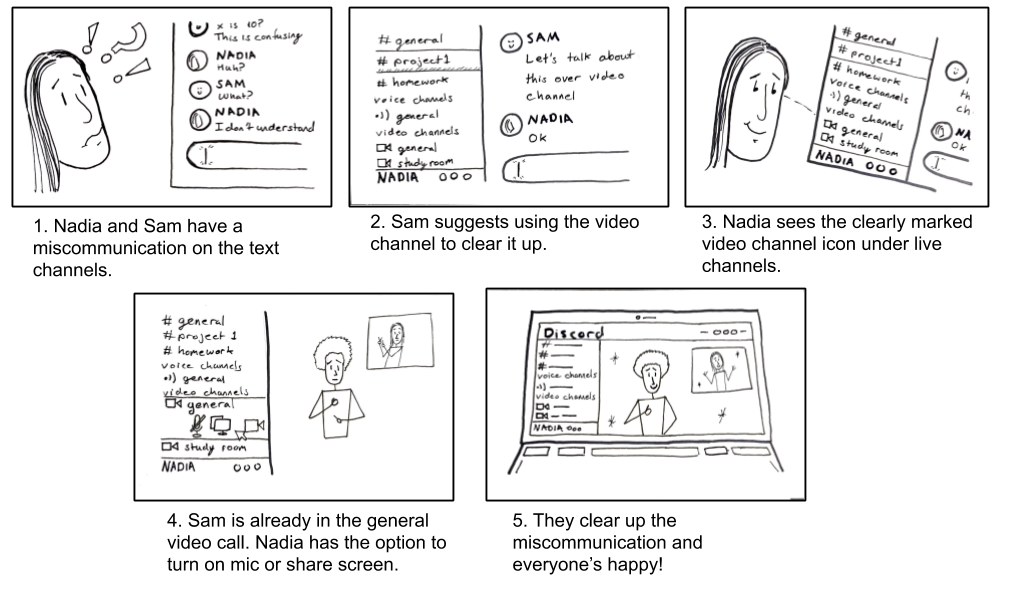 x is 10?
This is confusing
NADIA
Huh?
SAM
What?
NADIA
I don't understand
1. Nadia and Sam have a
miscommunication on the text
channels.
# general
# project1
# homework
voice channels
general
video channels
general
study room
NADIA
SAM
Let's talk about
this over video
channel
NADIA
Ok
2. Sam suggests using the video
channel to clear it up.
# general
# project1
# homework
voice channels
general
video channels
general
study room
NADIA
th
ch
NA
Ok
3. Nadia sees the clearly marked
video channel icon under live
channels.
# general
# project 1
# homework
voice channels
general
video channels
general
study room
NADIA
4. Sam is already in the general
video call. Nadia has the option to
turn on mic or share screen.
Discord
#
#
#
voice channels
video channels
NADIA
5. They clear up the
miscommunication and
everyone's happy!